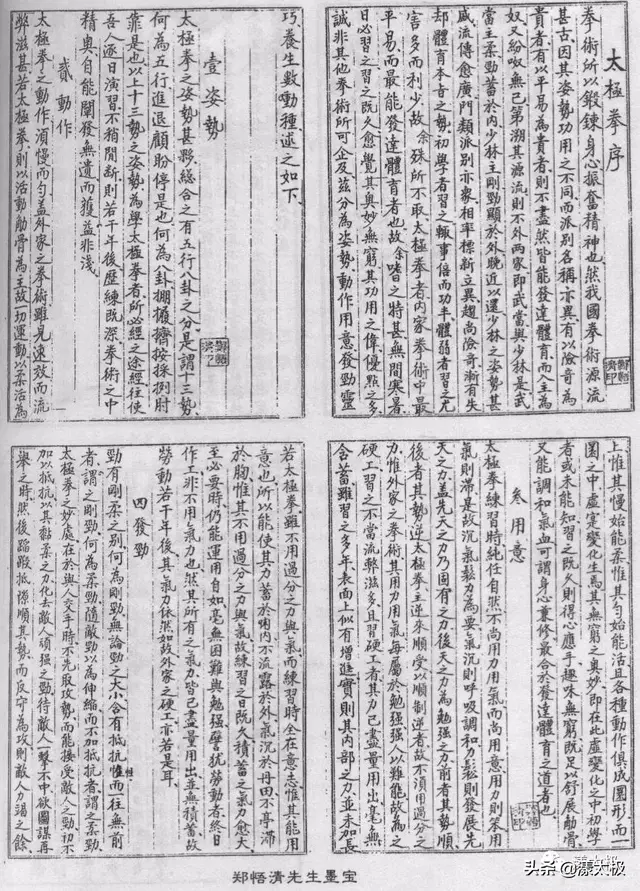 太極拳序
拳術所以鍛鍊身心振奮精神也然我國拳術源流
甚古因其姿勢功用之不同而派别各稱亦異有以險奇為
貴者有以平易為貴者則不盡然皆能發達體育而入主為
奴又紛呶無已第溯其源流則不外兩家即武當與少林是武
當主柔勁蓄於內少林主剛勁顯於外晚近以還少林之姿勢甚
威流傳愈廣門類派别亦衆相率標新立異趨尚險奇漸有失
却體育本音之勢初學者習之輙事倍而功半體弱者習之尤
害多而利少故余殊所不取太極拳者内家拳術中最
平易而最能發達體育者也故余嗜之特甚無間寒暑
日必習之習之既久愈覺其奥妙無窮其功用之偉優點之多
誠非其他拳術所可企及茲分為姿勢動作用意發勁靈
巧養生數嘞種逑之如下
壹姿勢
太極拳之姿勢甚夥綜合之有五行八卦之分是謂十三勢
何為五行進退顧盼停是也何為八卦掤履擠按採挒肘
靠是也以上十三勢之姿勢為學太極拳者所必經之途經往使
吾人逐日演習不稍間斷則若干年後歷練既深拳術之中
精奥自能闡發無遺而獲益非淺
貳動作
太極拳之動作須慢而勻盖外家之拳術雖見速效而流
弊滋甚若太極拳則以活動觔骨為主故一切運動以柔活為
上惟其慢始能柔惟其勻始能活且各種動作俱成圓形而一
圜之中虛寔變化生焉其無窮之奥妙即在此虛變化之中初學
者或未能知習之既久則得心應手趣味無窮既足以舒展觔骨
又能調和氣血可謂身心兼修最合於發達體育之道者也
叁用意
太極拳練習時純任自然不尚用力用氣而尚用意用力則笨用
氣則滯是故沉氣鬆力為要氣沉則呼吸調和力鬆則發展先
天之力盖先天之力乃固有之力後天之力為勉强之力前者其勢順
後者其勢逆太極拳主逆來順受以順制逆者故不須用過分之
力惟外家之拳術其用力用氣每屬於勉强强人以難能故為之
硬工習之不當流弊滋多且習硬工者其力已盡量用出毫無
含蓄雖習之多年表面上似有增進實則其内部之力並未加長
若太極拳雖不用過分之力與氣而練習時全在意志惟其能用
意也所以能使其力蓄於内不流露於外氣沉於丹田不亭滞
於胸惟其不用過分之力與氣故練習之日既久積蓄之氣力愈大
至必要時仍能運用自如毫無困難與勉强譬犹勞動者終日
作工非不用氣力也然其所有之氣力皆已盡量用出並無積蓄故
勞動若干年後其氣力依然如故外家之硬工亦若是耳
四發勁
勁有剛柔之别何為剛勁無論勁之大小含有抵抗性而往無前
者謂之剛勁何為柔勁隨敵勁以為伸縮而不加抵抗者謂之柔勁
太極拳之妙處在於與人交手時不先取攻勢而能接受敵人之勁初不
加以抵抗以其黏柔之力化去敵人頑强之勁待敵人一擊不中欲圖謀再
舉之時然後蹈瑕抵隙順其勢而反守為攻則敵人力竭之餘
郑悟清先生墨宝
头条@濠太极